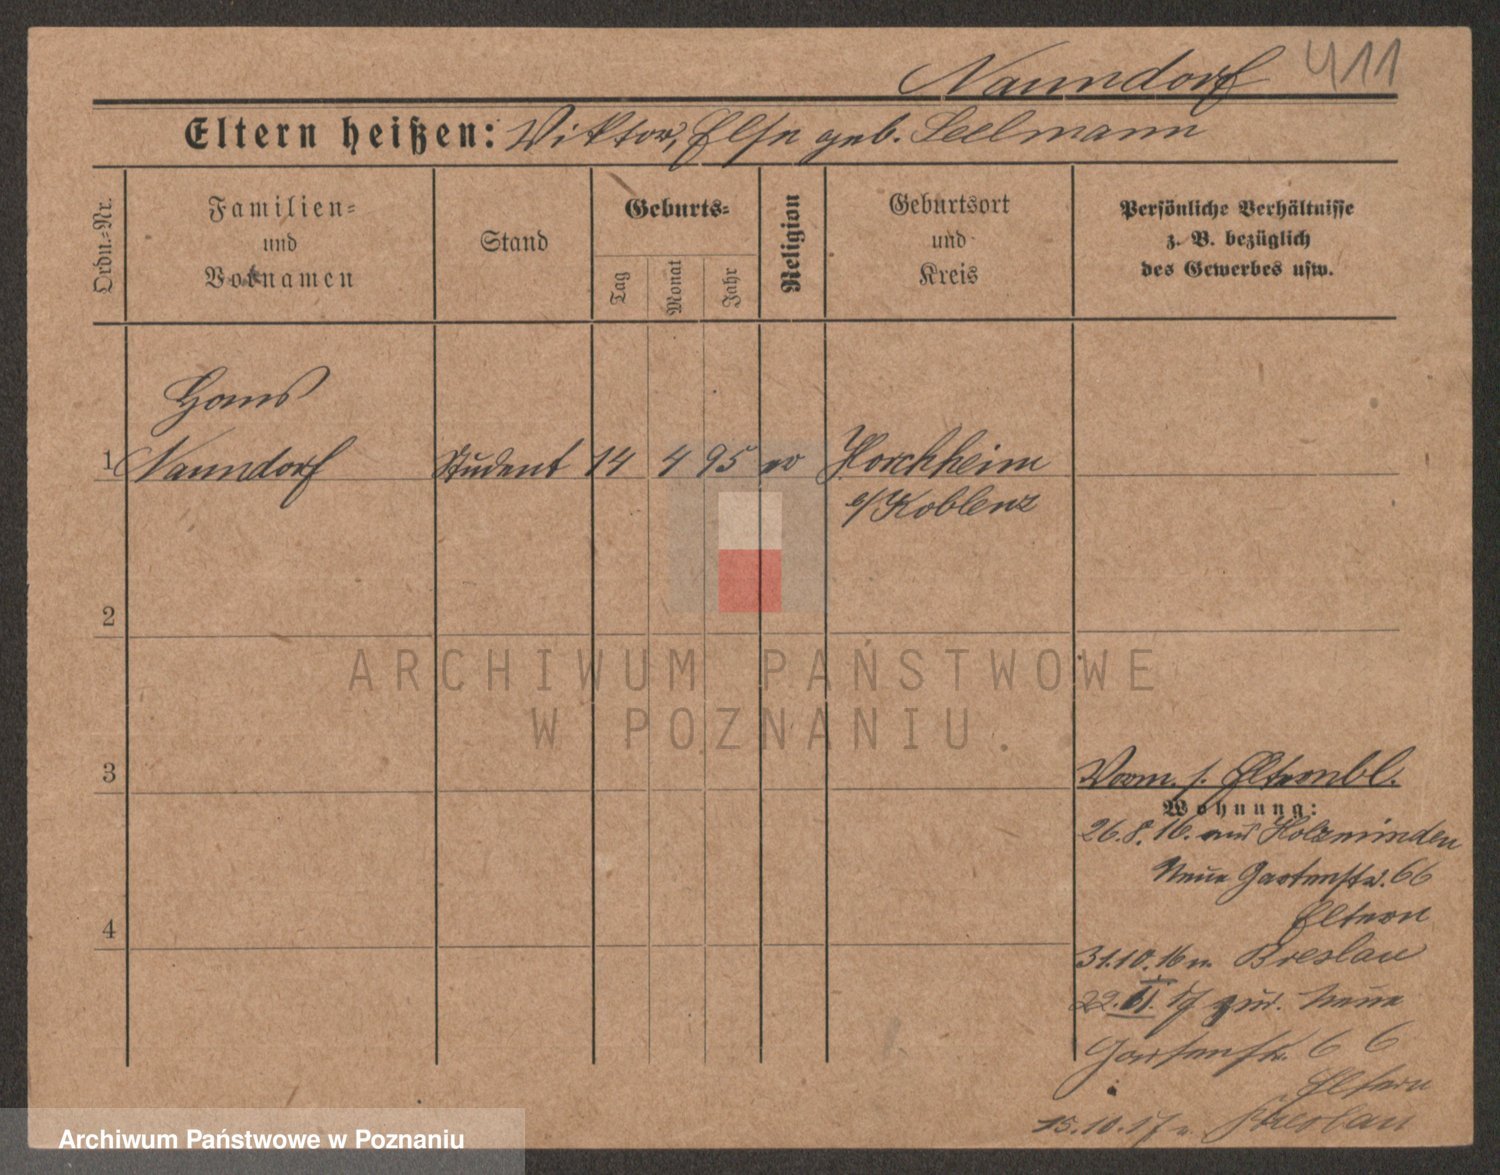 Nanndorf 411
Eltern heißen: Viktor, Else geb. Seelmann
Ordn.-Nr.
Familien- und Vornamen
Stand
Geburts-
Tag
Monat
Jahr
Religion
Geburtsort und Kreis
Persönliche Verhältnisse
z. B. bezüglich
des Gewerbes usw.
Hans
1 Nanndorf Student 14 4 95 ev Horchheim
b/Koblenz
2
ARCHIWUM PAŃSTWOWE
W POZNANIU.
3
Vorm. s. Elternbl.
Wohnung:
26.8.16. aus Holzminden
Neue Gartenstr. 66
Eltern
4
31.10.16 n. Breslau
22. II. 17 zur. Neue
Gartenstr. 66
Eltern
15.10.17 n. Breslau
Archiwum Państwowe w Poznaniu